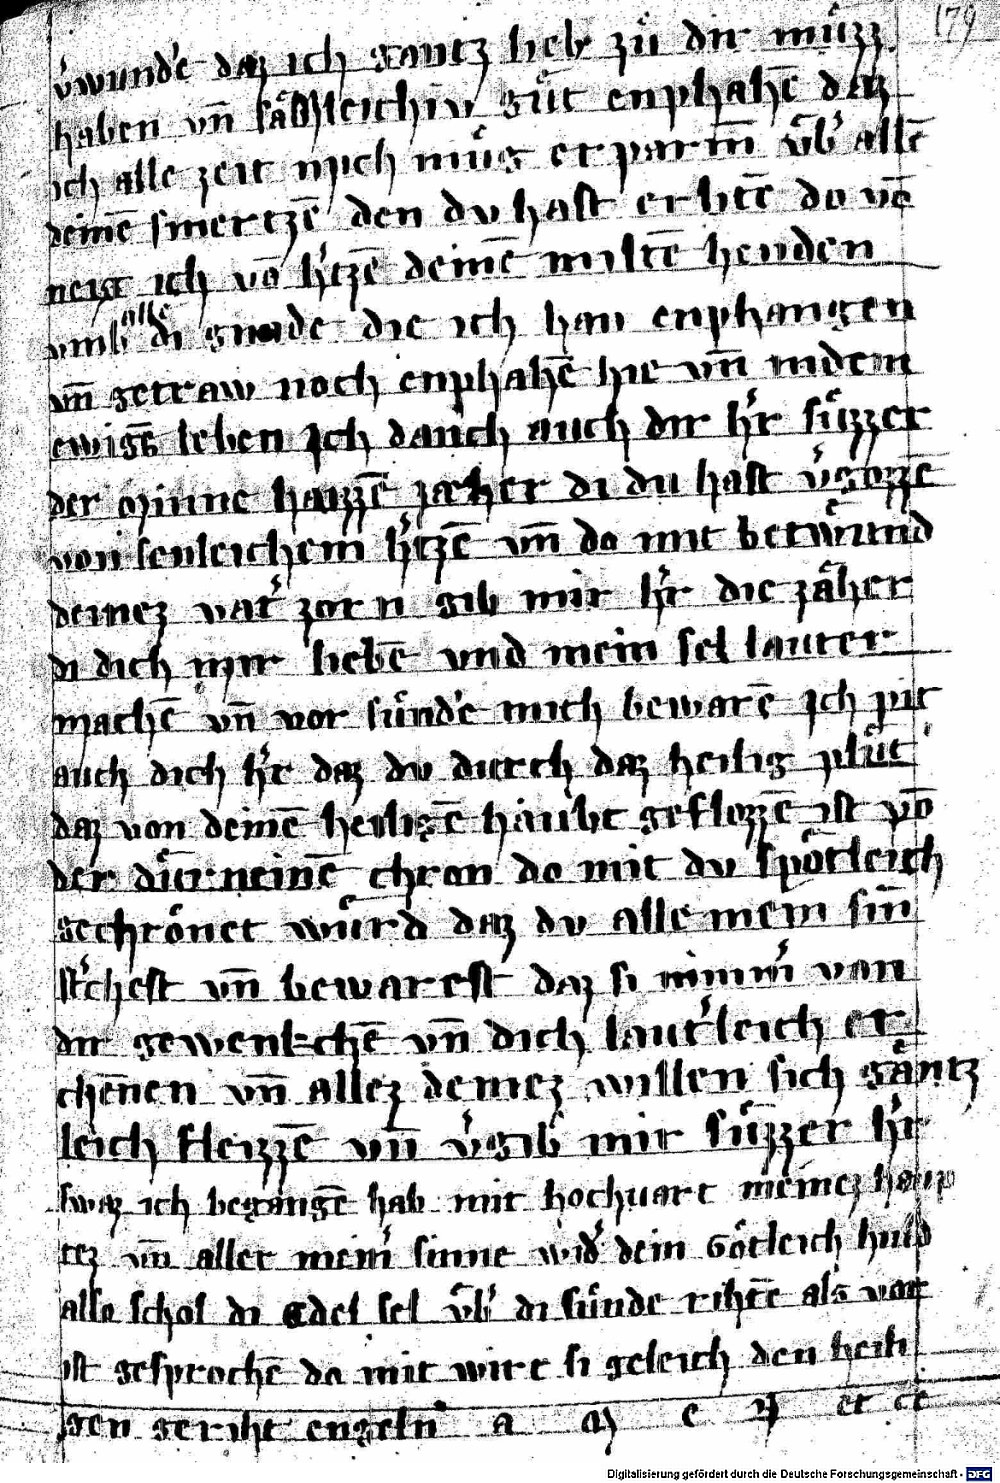 179
v̓wund'e daz ich gantz lieb zů dir můzz
haben vn̄ sälichleichiu gůt enphahē daz
ich alle zeit mich můg erparm̄ v̄b' allē
deinē smertzē den dv hast erlitē do vō
neig ich vō h'tzē deinē miltē henden
vmb alle di gnade die ich han enphangen
vn̄ getraw noch enphahē hie vn̄ indem
ewigē leben Ich danch auch dir h'r sůzzer
der minne haizzē zaher di du hast v'gozzē
von senleichem h'tzē vn̄ do mit betwůnd
deinez vat' zorn gib mir h'r die zäher
di dich mir liebē vnd mein sel lauter
machē vn̄ vor sůnd'e mich bewarē Ich pit
auch dich h'r daz dv durch daz heilig plůt
daz von deinē heiligē haubt geflozzē ist vō
der důrneinē chron do mit dv spötleich
gechrönet wůrd daz dv alle mein sin̄
st'chest vn̄ bewarest daz si nimm' von
dir gewenkchē vn̄ dich laut'leich er
chēnen vn̄ allez deinez willen sich gäntz
leich fleizzē vn̄ v'gib mir sůzzer h'r
swaz ich begangē hab mit hochuart meinez haup
tez vn̄ aller mein' sinne wid' dein götleich huld
also schol di edel sel v̄b' di sůnde rihtē als vor
ist gesprochē do mit wirt si geleich den heili
gen geriht engeln a m e n et cē
Digitalisierung gefördert durch die Deutsche Forschungsgemeinschaft - DFG